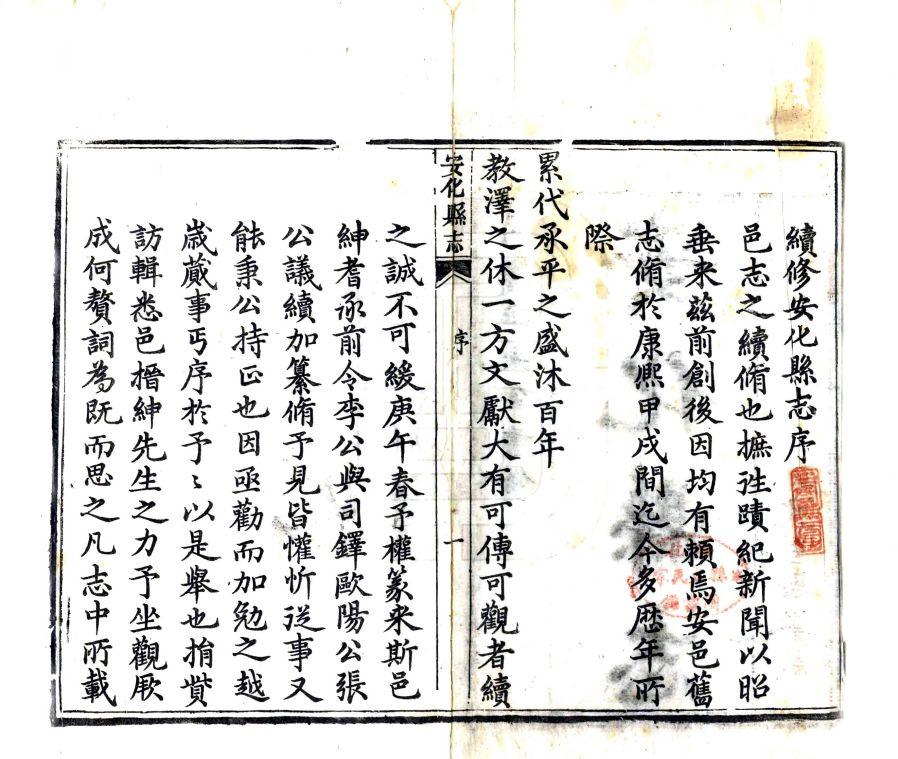 續修安化縣志序
邑志之續脩也摭徃蹟紀新聞以昭
垂来茲前創後因均有頼焉安邑舊
志脩於康熙甲戌間迄今多歴年所
際
累代承平之盛沐百年
教澤之休一方文獻大有可傳可觀者續
安化縣志
序
一
之誠不可緩庚午春予權篆来斯邑
紳耆承前令李公與司鐸歐陽公張
公議續加纂脩予見皆懽忻從事又
能秉公持正也因亟勸而加勉之越
歲蕆事丐序於予〻以是舉也捐貲
訪輯悉邑搢紳先生之力予坐觀厥
成何贅詞為既而思之凡志中所載